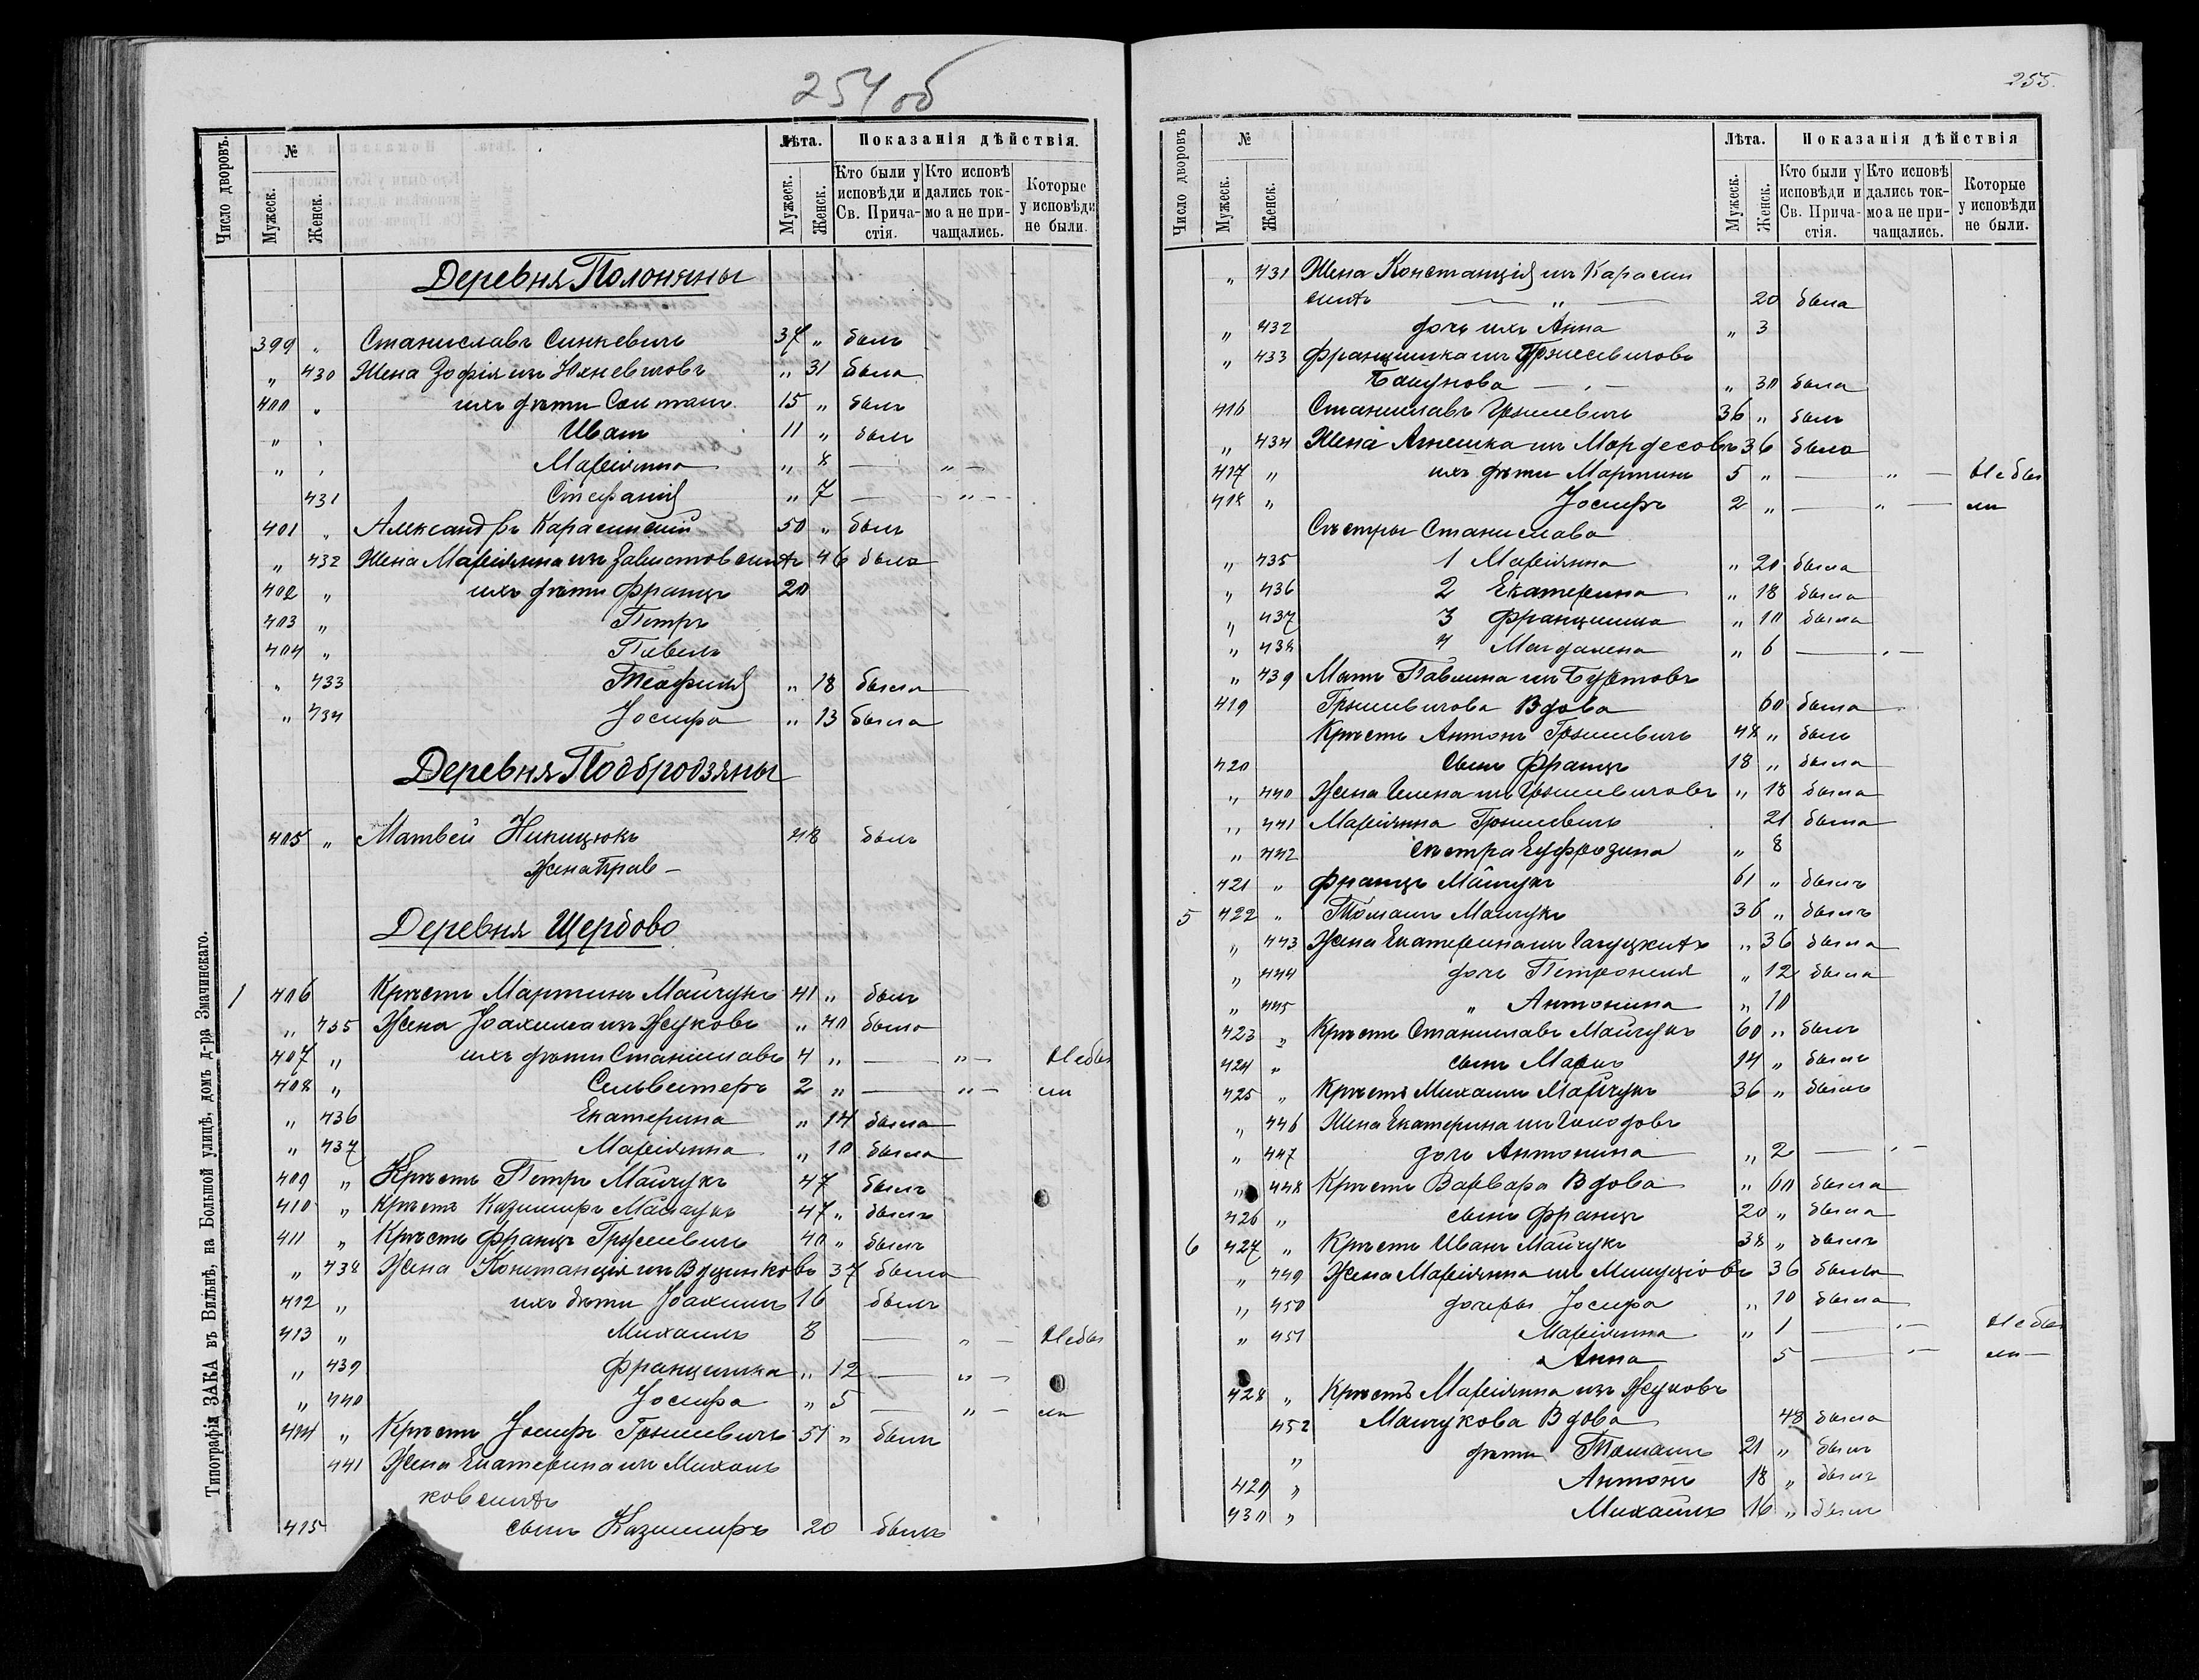 254 об
Число дворовъ.
№
Мужеск.
Женск.
Лѣта.
Мужеск.
Женск.
Показанія дѣйствія.
Кто были у исповѣди и Св. Прича-стія.
Кто исповѣ дались ток-мо а не при-чащались.
Которые у исповѣди не были.
Деревня Полоняны
399 „ Станиславъ Синкевичъ 37 „ былъ
„ 430 Жена Зофія изъ 31 была
400 „ ихъ дѣти 15 „ былъ
„ „ Иванъ 11 „ былъ
„ „ Маріянна „ 8 — „ —
431 Стефанія „ 7 — „ —
401 „ Александръ Карасинскій 50 „ былъ
„ 432 Жена Маріянна изъ Завистовскихъ 46 была
402 „ ихъ дѣти Францъ 20
403 „ Петръ
404 „ Павелъ
„ 433 Теофилія „ 18 была
„ 434 Іосифа „ 13 была
Деревня Подбродзяны
405 „ Матвей Никицюкъ 48 былъ
Жена Прав —
Деревня Щербово
1 406 Крѣст Мартинъ Майчукъ 41 „ былъ
„ 435 Жена Іоахима изъ Жуковъ „ 40 была
407 „ ихъ дѣти Станіславъ 4 „ — „ — Не бы
408 „ Сельвестеръ 2 „ — „ — ли
„ 436 Екатерина „ 14 была
„ 437 Маріянна „ 10 была
409 „ Крѣст Петръ Майчукъ 47 былъ
410 „ Крѣст Казимиръ Майчукъ 47 „ былъ
411 „ Крѣст Францъ Гржесевичъ 40 „ былъ
„ 438 Жена Констанція изъ 37 была
412 „ ихъ дѣти Іоахимъ 16 былъ
413 „ Михаилъ 8 — „ — Не бы
„ 439 Францишка „ 12 — „ —
„ 440 Іосифа „ 5 — „ — ли
414 „ Крѣст Іосифъ 51 „ былъ
441 Жена Екатерина изъ Михаль
ковскихъ
415 сынъ Казимиръ 20 былъ
Типографія ЗАКА въ Вильнѣ, на Большой улицѣ, домъ д-ра Змачинскаго.
255.
Число дворовъ
№
Мужеск.
Женск.
Лѣта.
Мужеск.
Женск.
Показанія дѣйствія
Кто были у исповѣди и Св. Прича-стія.
Кто исповѣ дались ток-мо а не при-чащались.
Которые у исповѣди не были.
„ 431 Жена Констанція изъ Карасин
скихъ — „ — 20 была
„ 432 дочь ихъ Анна „ 3
„ 433 Францишка изъ
— „ — „ 30 была
416 Станиславъ 36 „ былъ
„ 434 Жена Агнешка изъ Мордесовъ 36 была
417 „ ихъ дѣти Мартинъ 5 „ — „ — Не бы
418 „ Іосифъ 2 „ — „ — ли
Сѣстры Станислава
„ 435 1 Маріянна „ 20 была
„ 436 2 Екатерина „ 18 была
„ 437 3 Францишка „ 10 была
„ 438 4 Магдалена „ 6 — „ —
„ 439 Мать Павлина изъ
419 Вдова 60 была
Крѣст Антонъ 48 „ былъ
420 сынъ Францъ 18 „ была
„ 440 Жена изъ „ 18 была
„ 441 Маріянна 21 была
„ 442 сѣстра Ефрозина „ 8
421 „ Францъ Майчукъ 61 „ былъ
5 422 „ Томашъ Майчукъ 36 „ былъ
„ 443 Жена Екатерина изъ „ 36 была
„ 444 дочь Петронеля „ 12 была
„ 445 „ Антонина „ 10
423 „ Крѣст Станиславъ Майчукъ 60 „ былъ
424 „ сынъ 14 „ былъ
425 „ Крѣст Михаилъ Майчукъ 36 „ былъ
„ 446 Жена Екатерина изъ
„ 447 дочь Антонина „ 2 — „ —
„ 448 Крѣст Варвара Вдова „ 60 была
426 „ сынъ Францъ 20 „ была
6 427 „ Крѣст Иванъ Майчукъ 38 „ былъ
„ 449 Жена Маріянна изъ 36 была
„ 450 дочеры Іосифа „ 10 была
„ 451 Маріянна „ 1 — „ — Не бы
Анна 5 — „ — ли —
428 „ Крѣст Маріянна изъ Жуковъ
452 Майчукова Вдова 48 была
„ дѣти Томашъ 21 „ былъ
429 „ Антонъ 18 „ былъ
430 „ Михаилъ 16 „ былъ